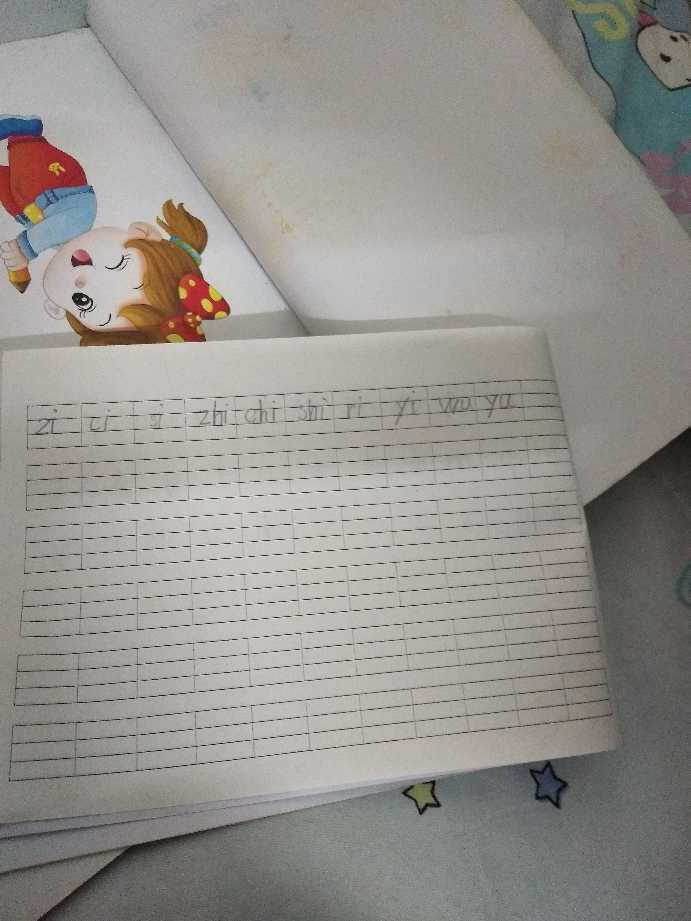 zi ci si zhi chi shi ri yi wu yu